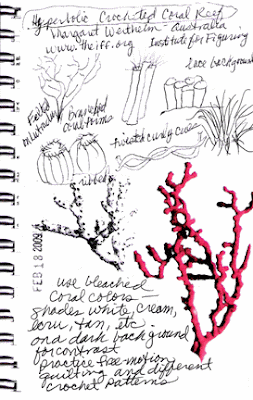 Hyperbolic Crocheted Coral Reef
Margaret Wertheim - Australia
www.theiff.org Institute for Figuring
lace background
branched
coral forms
twisted curly
ribbed
FEB 18 2009
use bleached
coral colors -
shades white, cream,
ecru, tan, etc.
on a dark background
for contrast
practice free motion
quilting and different
crochet patterns